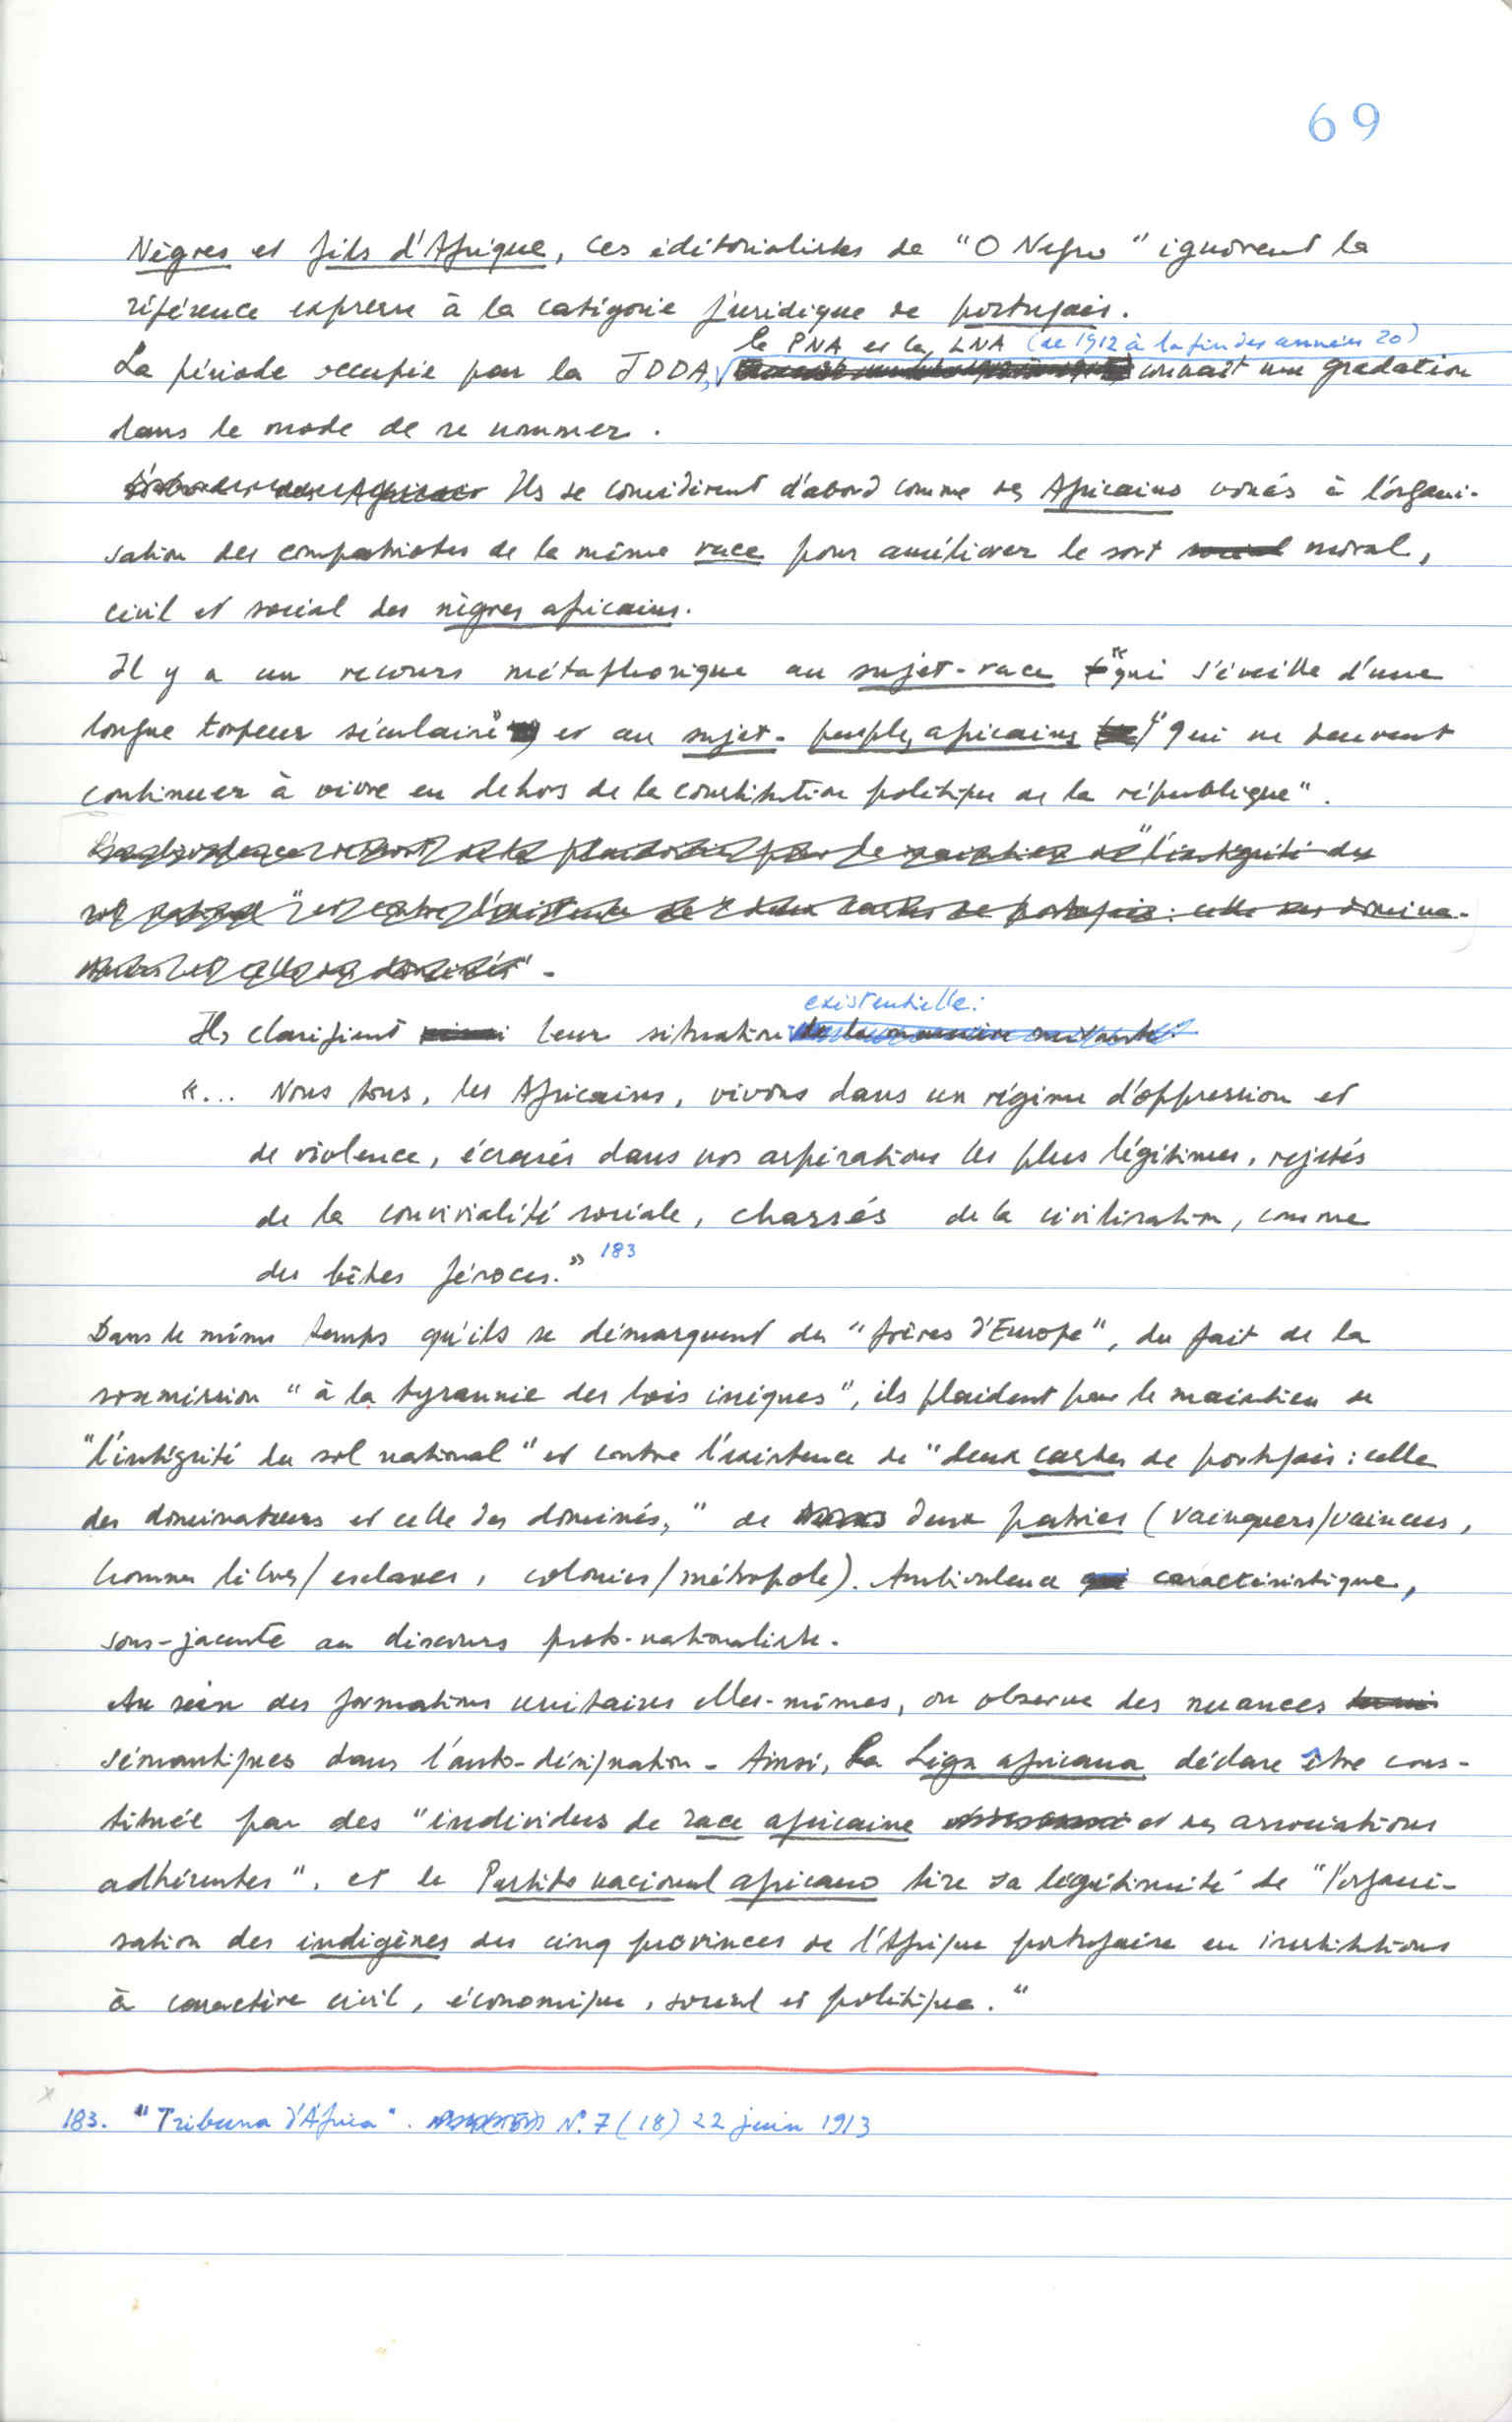 69
Nègres et fils d'Afrique, ces éditorialistes de "O Negro" ignorent la
référence expresse à la catégorie juridique de portugais.
le PNA et la LNA (de 1912 à la fin des années 20)
La période occupée par la JDDA, connaît une gradation
dans le mode de se nommer.
Ils se considèrent d'abord comme des Africains voués à l'organi-
sation des compatriotes de la même race pour améliorer le sort social moral,
civil et social des nègres africains.
Il y a un recours métaphorique au sujet-race "qui s'éveille d'une
longue torpeur séculaire" et au sujet-peuples africains "qui ne peuvent
continuer à vivre en dehors de la constitution politique de la république".
"l'intégrité du
sol national" et contre l'existence de "deux castes de portugais : celle des domina-
existentielle :
Ils clarifient ainsi leur situation de la manière suivante :
"... Nous tous, les Africains, vivons dans un régime d'oppression et
de violence, écrasés dans nos aspirations les plus légitimes, rejetés
de la convivialité sociale, chassés de la civilisation, comme
des bêtes féroces." 183
Dans le même temps qu'ils se démarquent des "frères d'Europe", du fait de la
soumission "à la tyrannie des lois iniques", ils plaident pour le maintien de
"l'intégrité du sol national" et contre l'existence de "deux castes de portugais : celle
des dominateurs et celle des dominés," de deux patries (vainqueurs/vaincus,
hommes libres/esclaves, colonies/métropole). Ambivalence qui caractéristique,
sous-jacente au discours proto-nationaliste.
Au sein des formations unitaires elles-mêmes, on observe des nuances
sémantiques dans l'auto-désignation. Ainsi, la Liga africana déclare être cons-
tituée par des "individus de race africaine et des associations
adhérentes", et le Partido nacional africano tire sa légitimité de "l'organi-
sation des indigènes des cinq provinces de l'Afrique portugaise en institutions
à caractère civil, économique, social et politique."
183. "Tribuna d'África". N.7 (18) 22 juin 1913